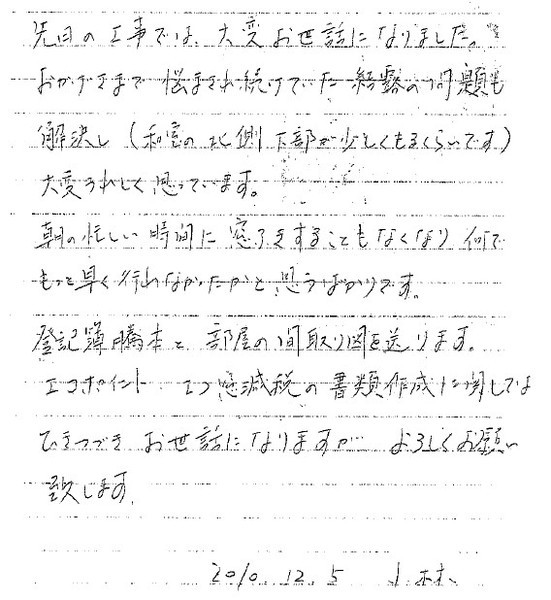 先日の工事では、大変お世話になりました。
おかげさまで 悩まされ続けていた結露の問題も
解決し（和室の北側下部が少しくもるくらいです）
大変うれしく思っています。
朝の忙しい時間に窓ふきをすることもなくなり 何で
もっと早く行わなかったかと思うばかりです。
登記簿謄本と 部屋の間取り図を送ります。
エコポイント エコ窓減税の書類作成に関しては
ひきつづき お世話になりますが よろしくお願い
致します。
2010. 12. 5 小林